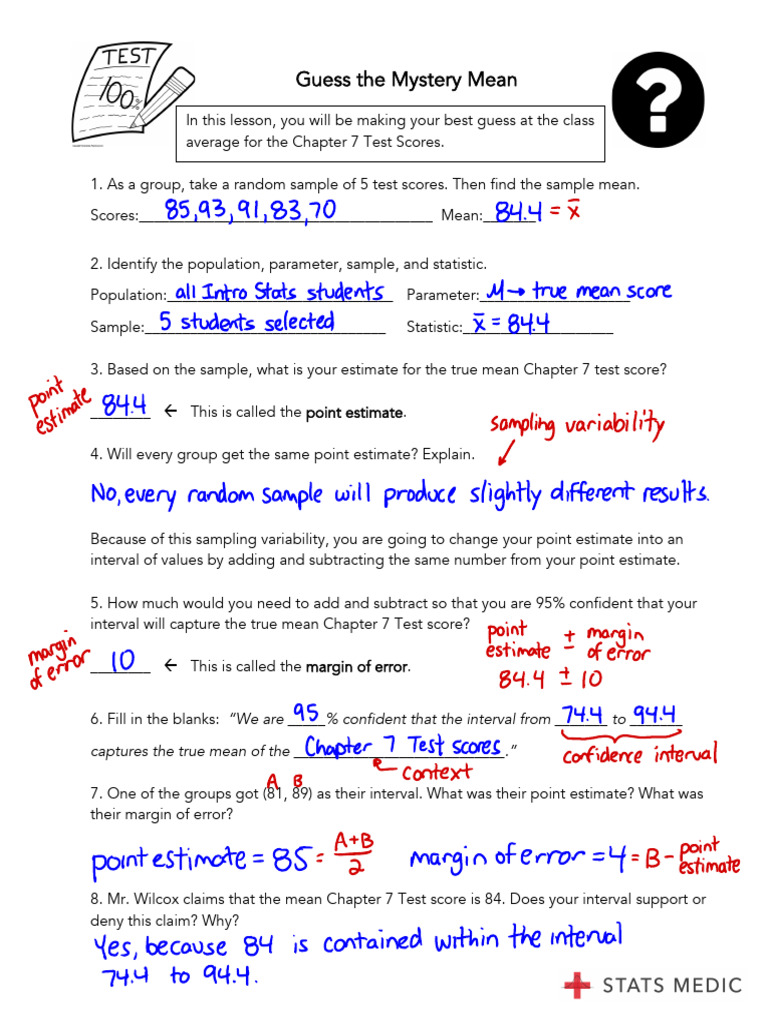 TEST
100%
Guess the Mystery Mean
?
In this lesson, you will be making your best guess at the class
average for the Chapter 7 Test Scores.
1. As a group, take a random sample of 5 test scores. Then find the sample mean.
Scores: 85, 93, 91, 83, 70 Mean: 84.4 = x̄
2. Identify the population, parameter, sample, and statistic.
Population: all Intro Stats students Parameter: M → true mean score
Sample: 5 students selected Statistic: x̄ = 84.4
3. Based on the sample, what is your estimate for the true mean Chapter 7 test score?
point
estimate
84.4 ← This is called the point estimate.
sampling variability
4. Will every group get the same point estimate? Explain.
No, every random sample will produce slightly different results.
Because of this sampling variability, you are going to change your point estimate into an
interval of values by adding and subtracting the same number from your point estimate.
5. How much would you need to add and subtract so that you are 95% confident that your
interval will capture the true mean Chapter 7 Test score?
point estimate ± margin of error
84.4 ± 10
margin
of error
10 ← This is called the margin of error.
6. Fill in the blanks: “We are 95 % confident that the interval from 74.4 to 94.4
captures the true mean of the Chapter 7 Test scores.”
confidence interval
context
A B
7. One of the groups got (81, 89) as their interval. What was their point estimate? What was
their margin of error?
point estimate = 85 = A+B/2 margin of error = 4 = B - point estimate
8. Mr. Wilcox claims that the mean Chapter 7 Test score is 84. Does your interval support or
deny this claim? Why?
Yes, because 84 is contained within the interval
74.4 to 94.4.
STATS MEDIC